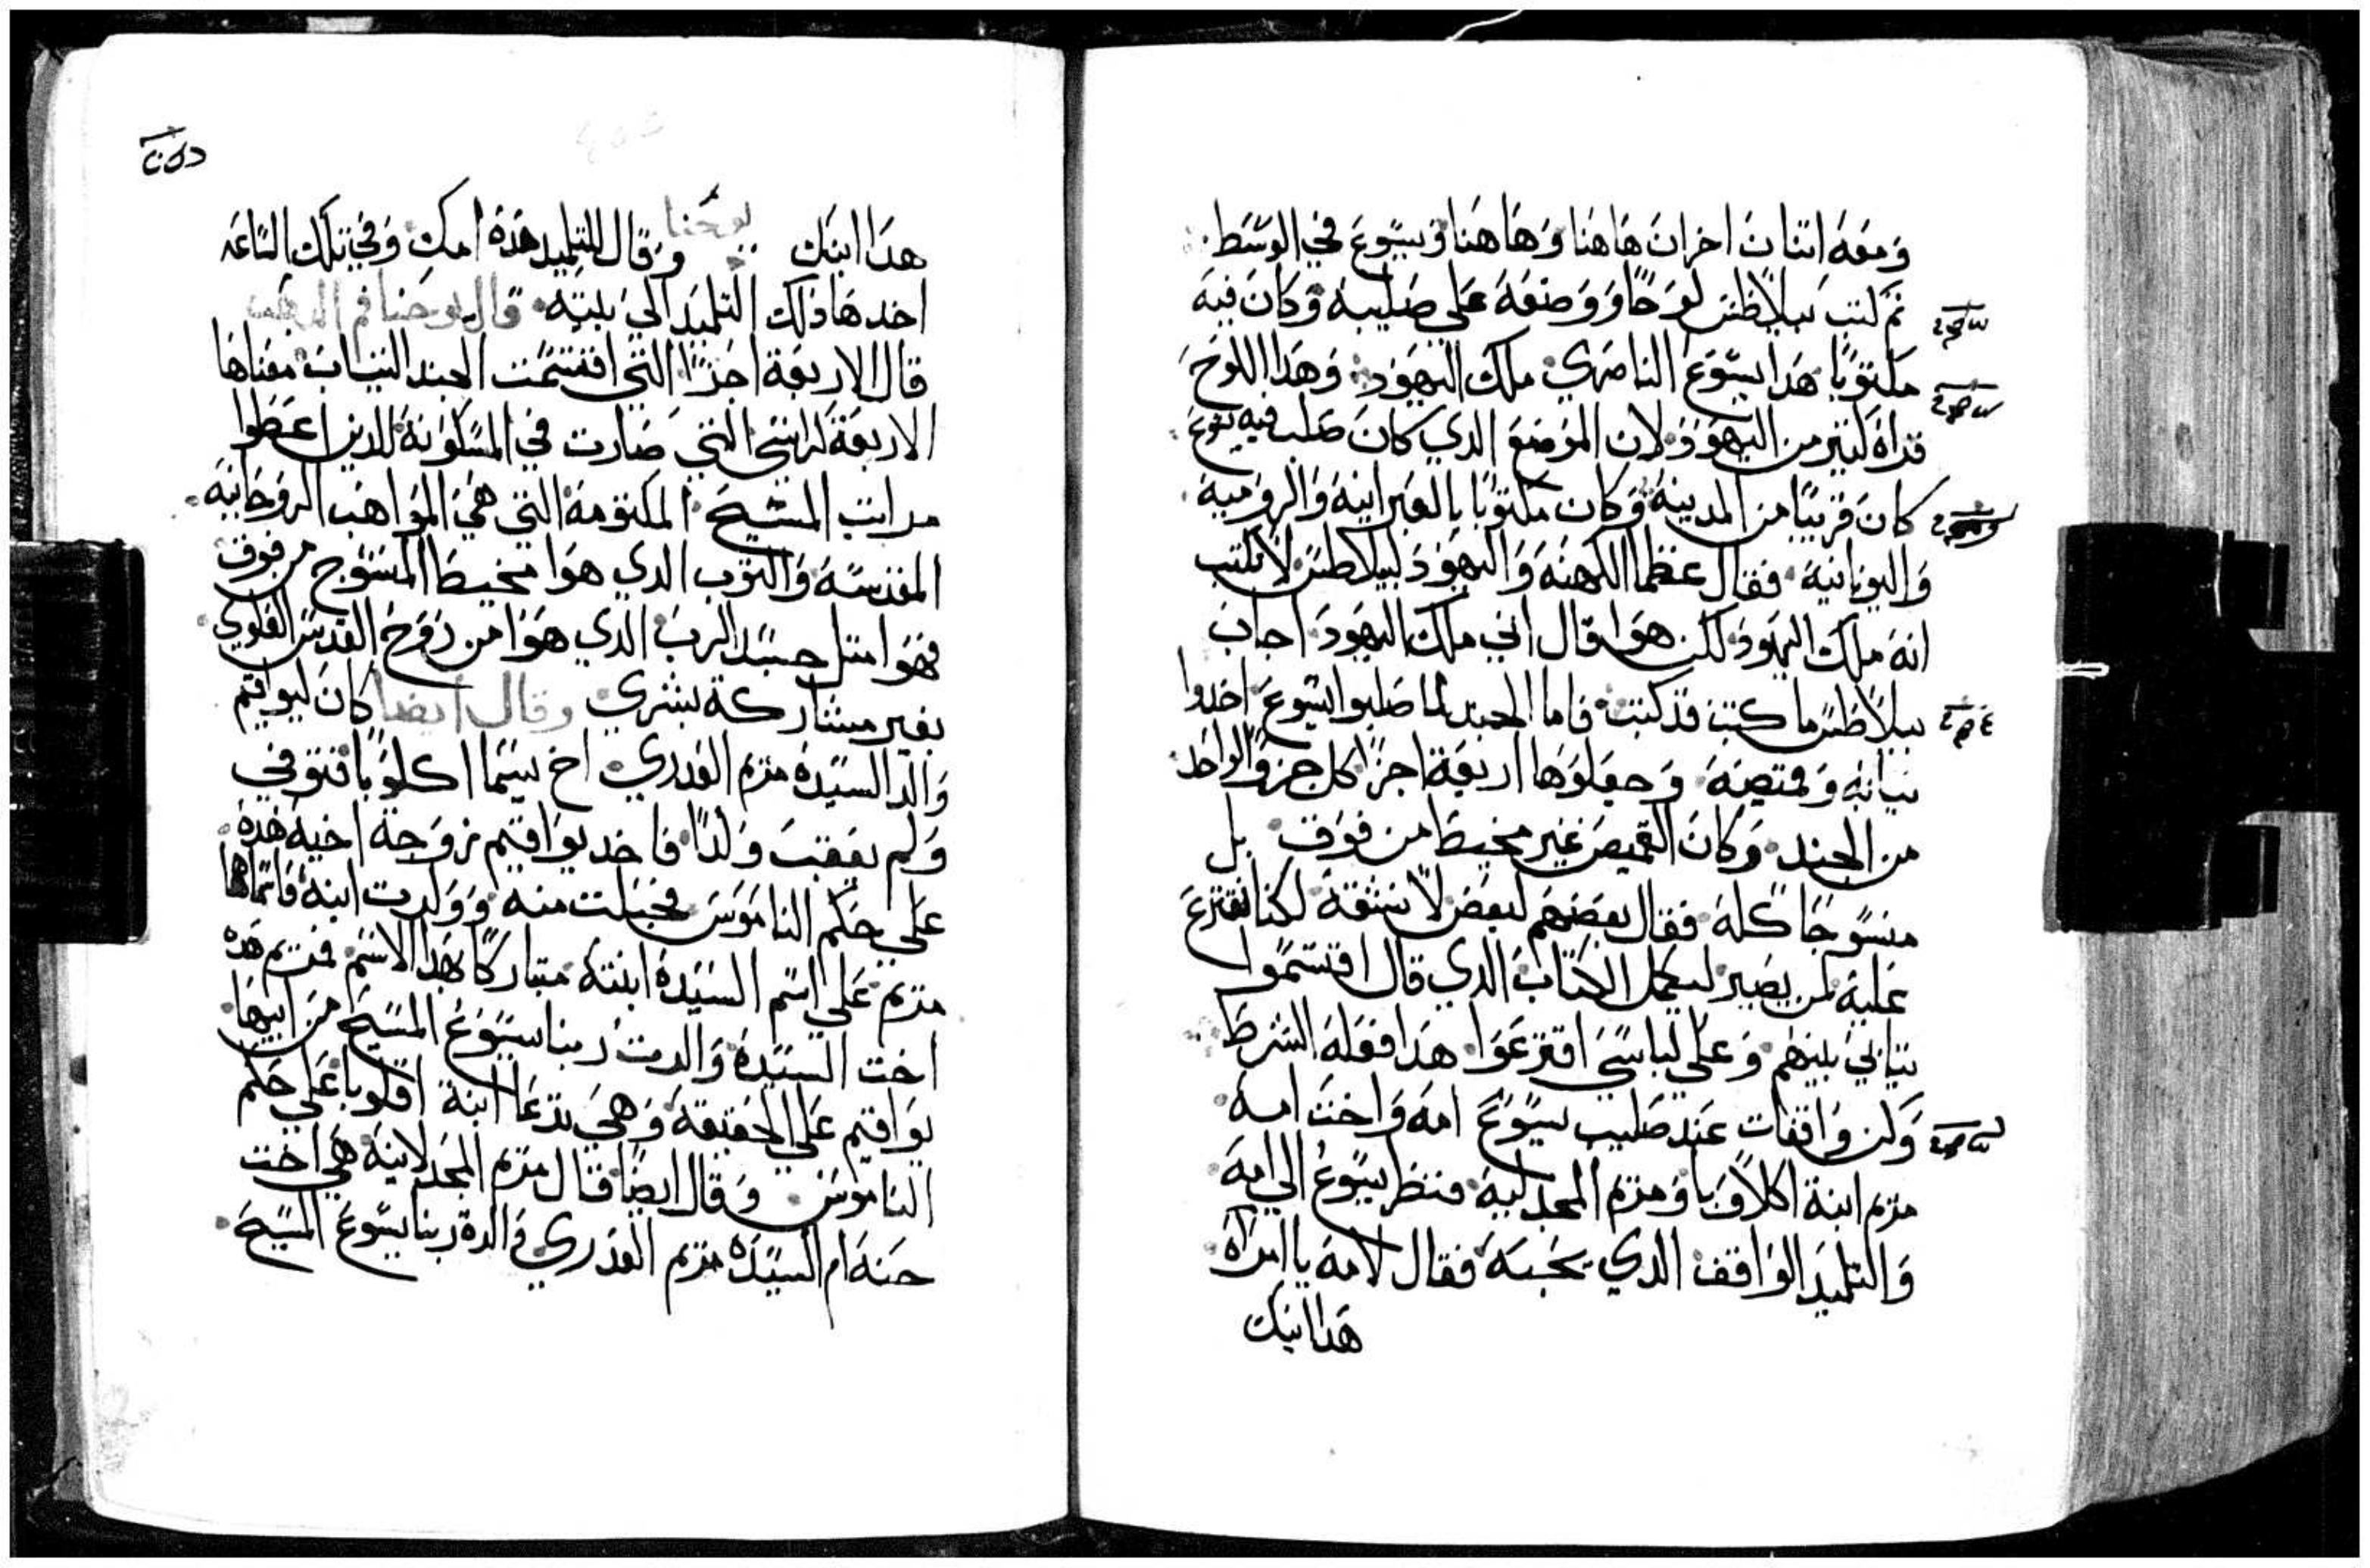 ومعه اتنان اخران هاهنا وهاهنا ويسوع في الوسط
تم كتب بيلاطس لوحًا ووضعه علي صليبه وكان فيه
مكتوبًا هدا يسوع الناصري ملك اليهود وهدا اللوح
قراه كتير من اليهود ولان الموضع الدي كان صلب فيه يسوع
كان قريبًا من المدينة وكان مكتوبًا بالعبرانية والرومية
واليونانية فقال عظما الكهنه واليهود لبيلاطس لا تكتب
انه ملك اليهود لكن هوا قال اني ملك اليهود اجاب
بيلاطس ما كتبت قد كتبت فاما الجند لما صلبوا يسوع اخدوا
تيابه وقميصه وجعلوها اربعة اجزا كل جزو لواحد
من الجند وكان القميص غير مخيط من فوق بل
منسوجًا كله فقال بعضهم لبعض لا نشقه لكنا نقترع
عليه لمن يصير ليكمل الكتاب الدي قال اقتسموا
تيابي بينهم وعلي لباسي اقترعوا هدا فعله الشرط
وكن واقفات عند صليب يسوع امه واخت امه
مريم ابنة اكلاوبا ومريم المجدلية فنظر يسوع الي امه
والتلميد الواقف الدي يحبه فقال لامه يا امراه
هدا ابنك
هدا ابنك وقال للتلميد هده امك وفي تلك الساعه
اخدها دلك التلميد الي بيته قال يوحنا فم الدهب
قال الاربعة اجزا التي اقتسمت الجند التياب معناها
الاربعة كراسي التي صارت في المسكونة للدين اعطوا
مراتب المسيح المكتومة التي هي المواهب الروحانية
المقدسة والتوب الدي هوا مخيط المنسوج من فوق
فهوا متل جسد الرب الدي هوا من روح القدس العلوي
بغير مشاركة بشري وقال ايضا كان ليواقيم
والد السيدة مريم العدري اخ يسما اكلوبا فتوفي
ولم يعقب ولدًا فاخد يواقيم زوجة اخيه هده
علي حكم الناموس فحبلت منه وولدت ابنة فاسماها
مريم علي اسم السيدة ابنته متباركًا بهدا الاسم فمريم هده
اخت السيدة والدت ربنا يسوع المسيح من ابيها
يواقيم علي الحقيقة وهي تدعا ابنة اقلوبا علي حكم
الناموس وقال ايضًا قال مريم المجدلانية هي اخت
حنه ام السيدة مريم العدري والدة ربنا يسوع المسيح